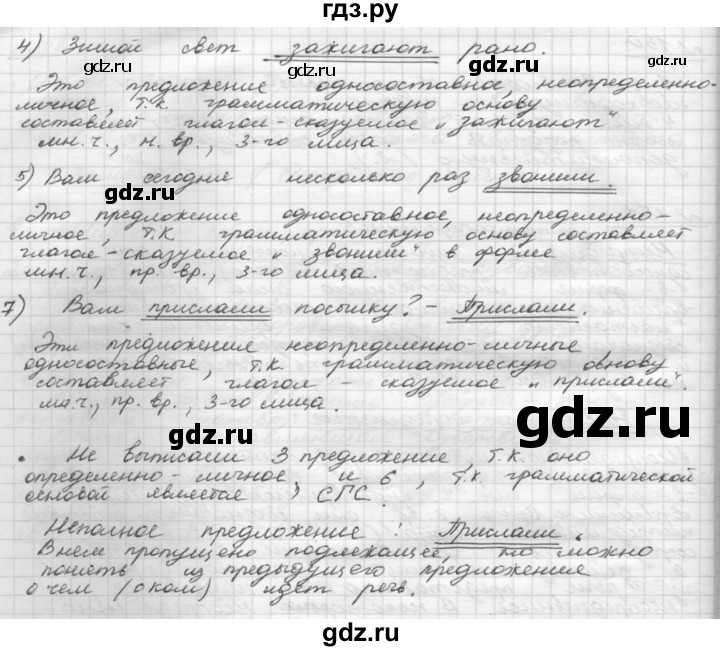 гдз.ру
4) Зимой свет зажигают рано.
Это предложение односоставное, неопределенно-
личное, т.к. грамматическую основу
составляет глагол-сказуемое „зажигают“
мн.ч., н. вр., 3-го лица.
gdz.ru
gdz.ru
5) Вам сегодня несколько раз звонили.
Это предложение односоставное, неопределенно-
личное, т.к грамматическую основу составляет
глагол-сказуемое „звонили“ в форме
мн.ч., пр. вр., 3-го лица.
gdz.ru
gdz.ru
7) Вам прислали посылку? - Прислали.
Эти предложение неопределенно-личные
односоставные, т.к. грамматическую основу
составляет глагол - сказуемое „прислали“.
мн.ч., пр. вр., 3-го лица.
gdz.ru
gdz.ru
. Не выписали 3 предложение, т.к. оно
определенно-личное, и 6, т.к. грамматической
основой является СГС.
gdz.ru
Неполное предложение: Прислали.
В нем пропущено подлежащее, то можно
понять из предыдущего предложения
о чем (о ком) идет речь.
gdz.ru
gdz.ru
gdz.ru